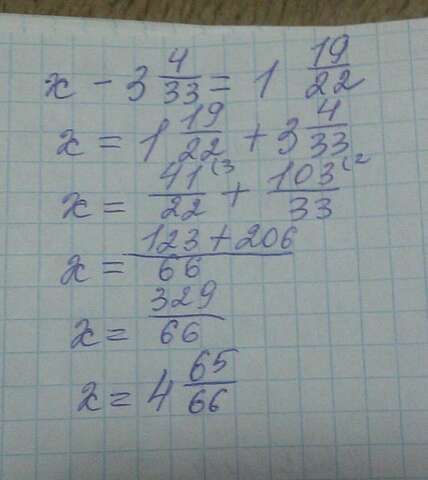 x - 3 4/33 = 1 19/22
x = 1 19/22 + 3 4/33
x = 41(3/22 + 103(2/33
x = 123+206/66
x = 329/66
x = 4 65/66